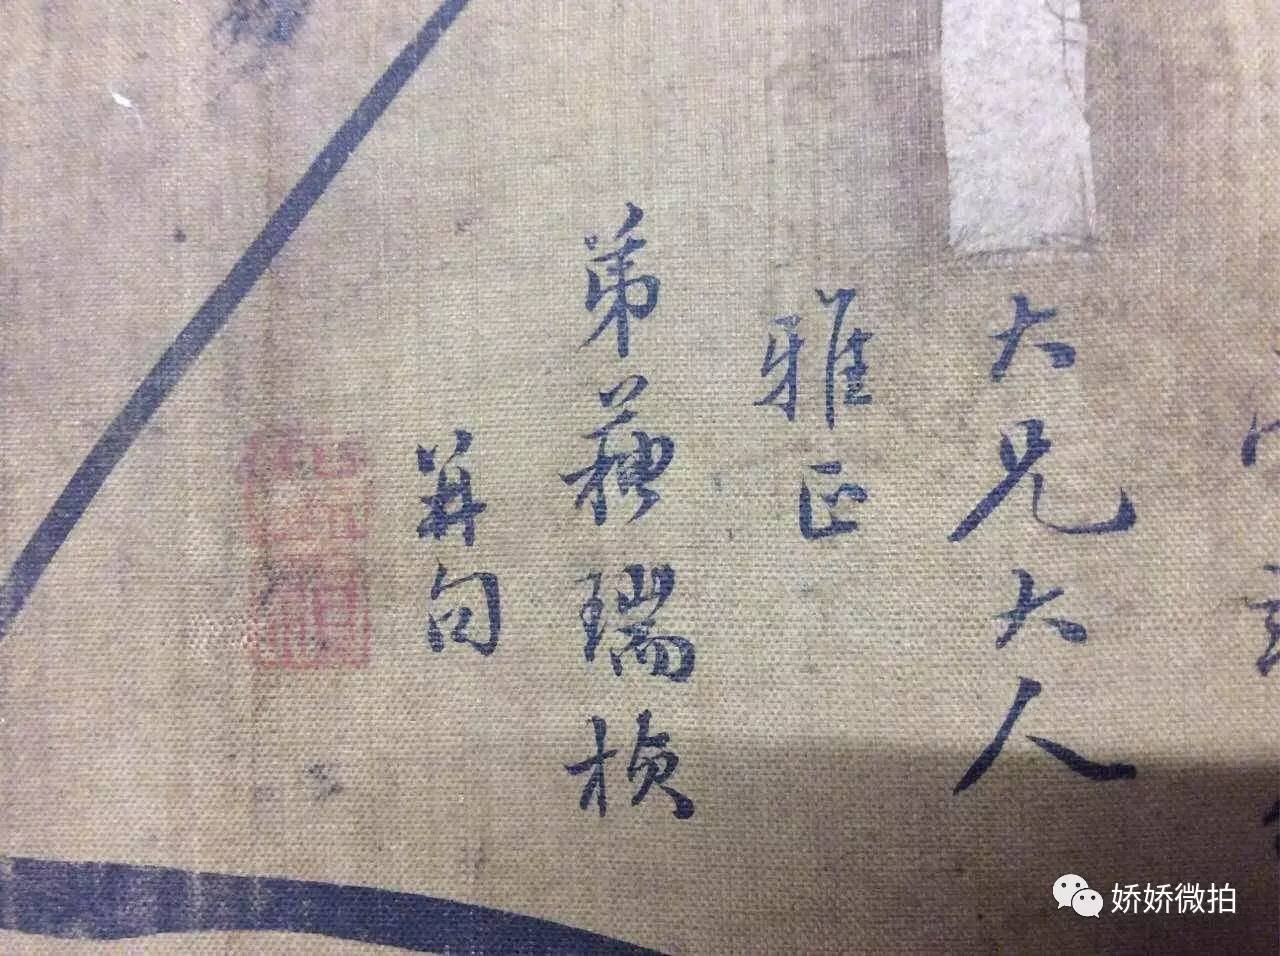 大兄大人
雅正
弟蘇瑞楨
并句
娇娇微拍